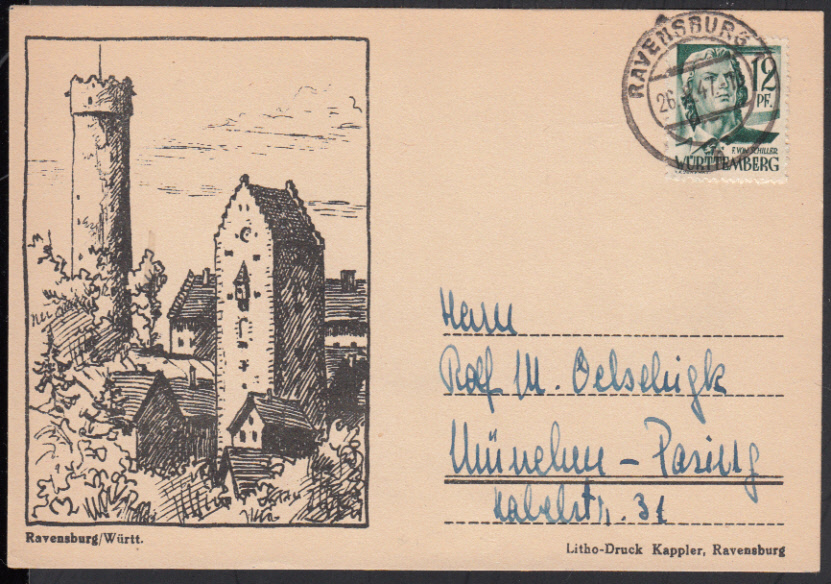 RAVENSBURG
26. 47
12
PF.
F. VON SCHILLER
WÜRTTEMBERG
Herrn
Rolf M. Oelschigk
München - Pasing
str. 31
Ravensburg/Württ.
Litho-Druck Kappler, Ravensburg